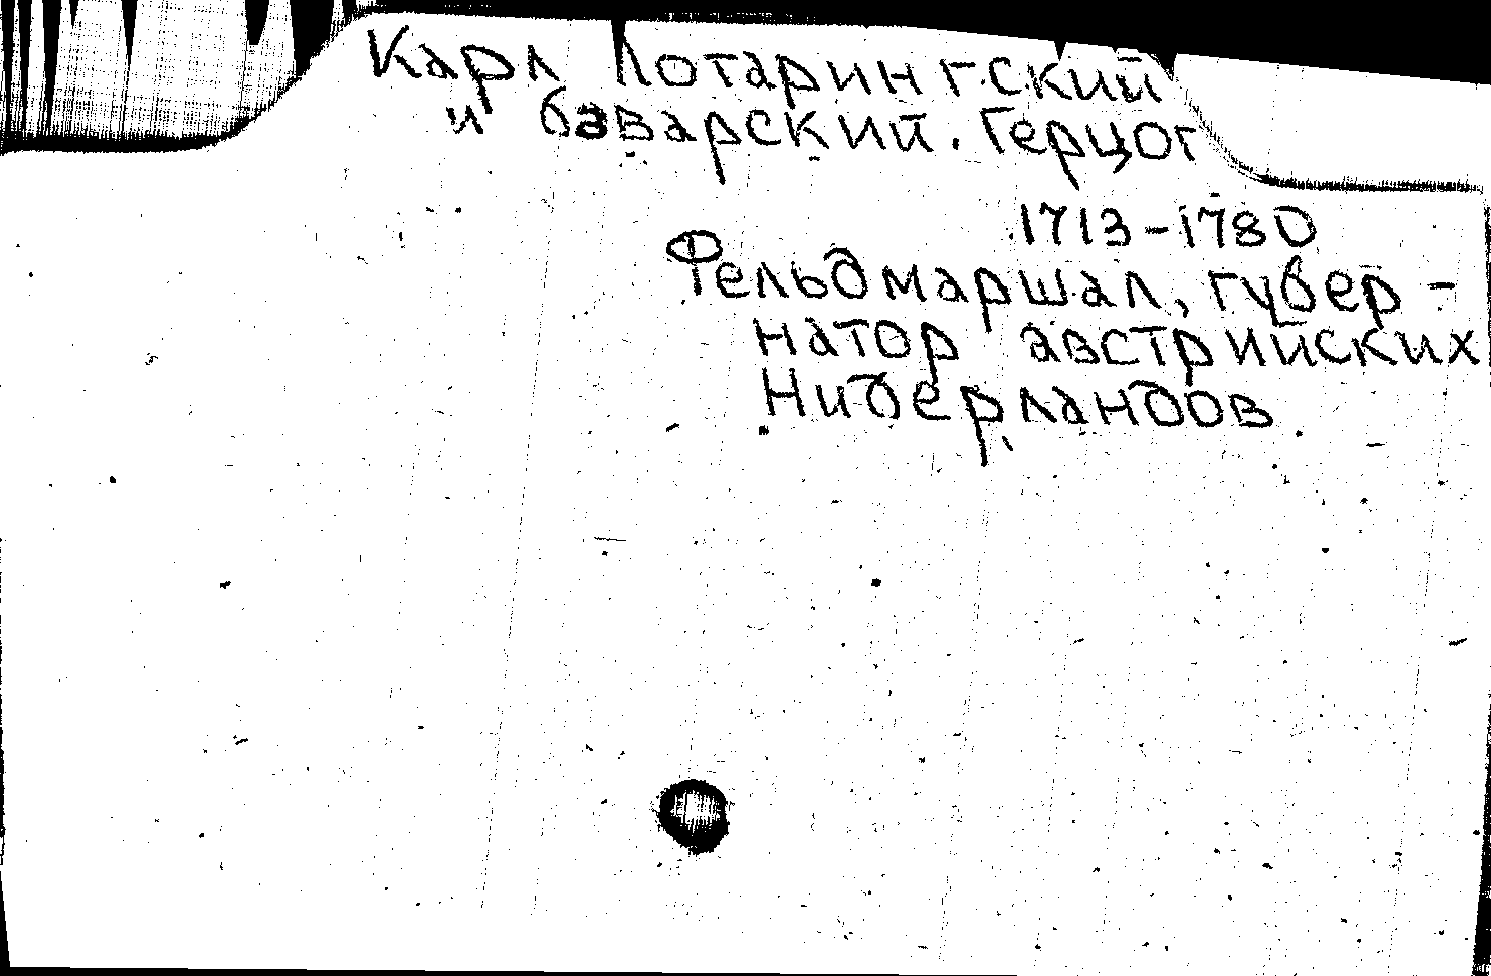 Карл Лотарингский
и баварский. Герцог
1713-1780
Фельдмаршал, губер-
натор австрийских
Нидерландов